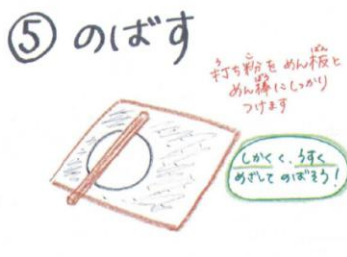 ⑤ のばす
打ち粉を めん板と
めん棒にしっかり
つけます
しかくく、うすく
めざして のばそう!